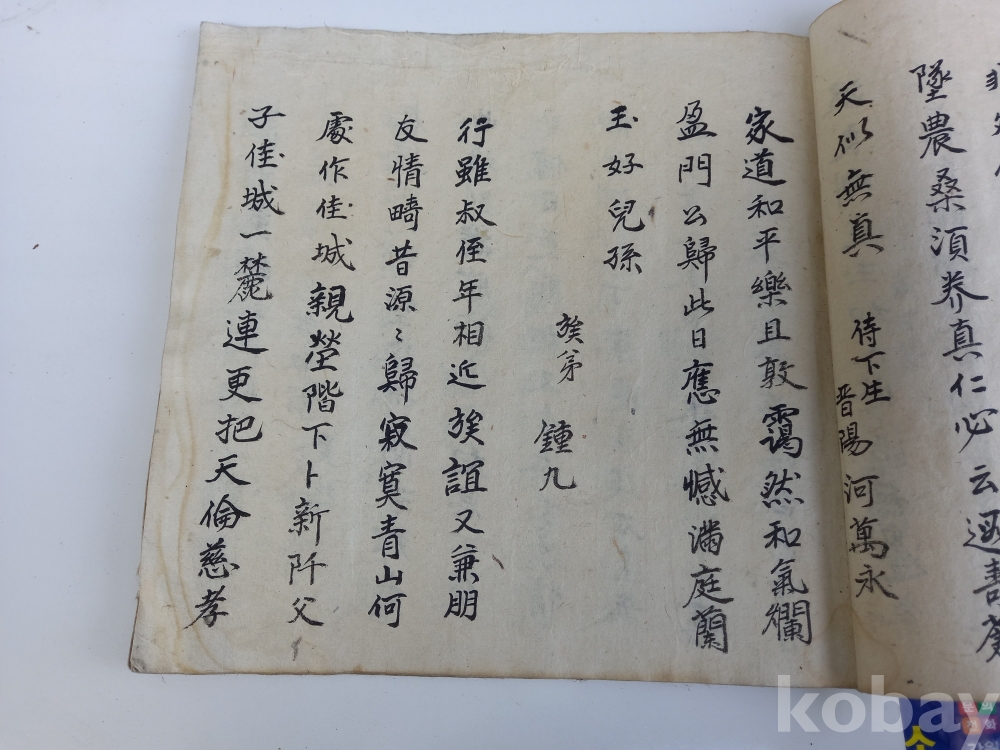 墜農桑須养真仁必云逝善
天似無真 侍下生
晋陽 河萬永
家道和平樂且敦靄然和氣爛
盈門公歸此日應無憾滿庭蘭
玉好兒孫
族弟 鍾九
行雖叔侄年相近族誼又兼朋
友情疇昔源〻歸寂寞青山何
處作佳城親塋階下卜新阡父
子佳城一麓連更把天倫慈孝
kobay